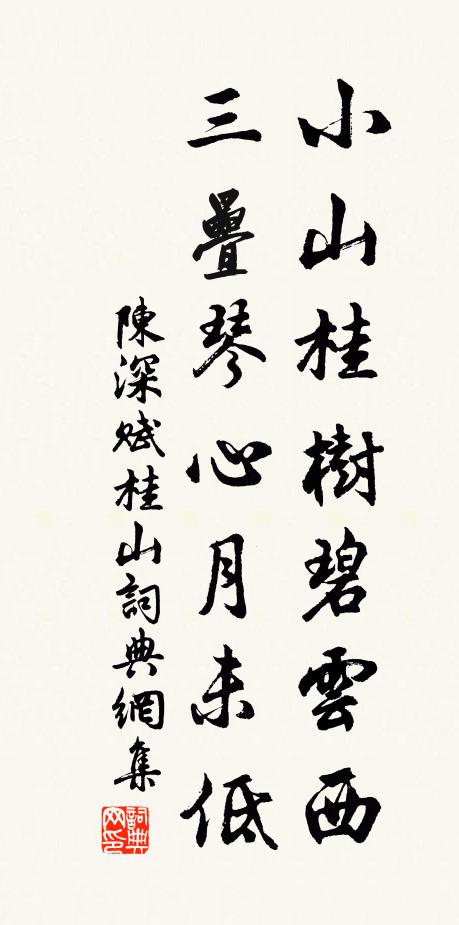 小山桂樹碧雲西
三疊琴心月未低
陳深賦桂山詞典網集
詞典网印